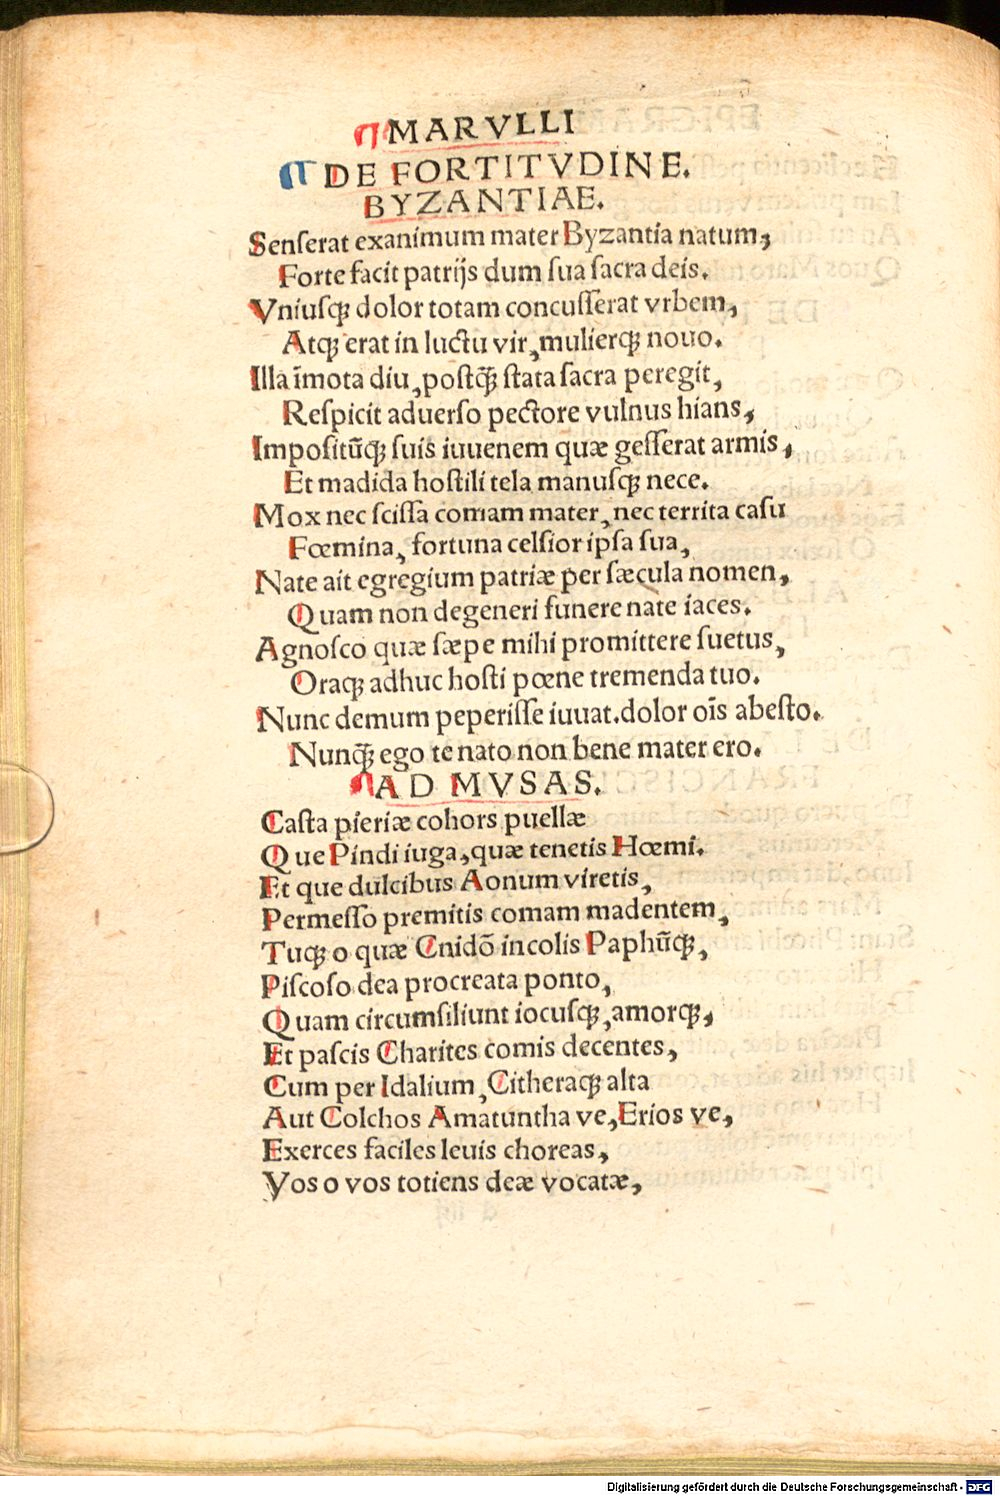 ¶MARVLLI
¶ DE FORTITVDINE.
BYZANTIAE.
Senſerat exanimum mater Byzantia natum,
Forte facit patrijs dum ſua ſacra deis.
Vniuſqꝫ dolor totam concuſſerat vrbem,
Atqꝫ erat in luctu vir,mulierqꝫ nouo.
Illa īmota diu,poſtqꝫ̄ ſtata ſacra peregit,
Reſpicit aduerſo pectore vulnus hians,
Impoſitūqꝫ ſuis iuuenem quæ geſſerat armis,
Et madida hoſtili tela manuſqꝫ nece.
Mox nec ſciſſa comam mater,nec territa caſu
Fœmina, fortuna celſior ipſa ſua,
Nate ait egregium patriæ per ſæcula nomen,
Quam non degeneri funere nate iaces.
Agnoſco quæ ſæpe mihi promittere ſuetus,
Oraqꝫ adhuc hoſti pœne tremenda tuo.
Nunc demum peperiſſe iuuat.dolor oīs abeſto.
Nunqꝫ̄ ego te nato non bene mater ero.
¶AD MVSAS.
Caſta pieriæ cohors puellæ
Que Pindi iuga,quæ tenetis Hœmi.
Et que dulcibus Aonum viretis,
Permeſſo premitis comam madentem,
Tuqꝫ o quæ Cnidō incolis Paphūqꝫ,
Piſcoſo dea procreata ponto,
Quam circumſiliunt iocuſqꝫ,amorqꝫ,
Et paſcis Charites comis decentes,
Cum per Idalium,Citheraqꝫ alta
Aut Colchos Amatuntha ve,Erios ve,
Exerces faciles leuis choreas,
Vos o vos totiens deæ vocatæ,
Digitalisierung gefördert durch die Deutsche Forschungsgemeinschaft - DFG